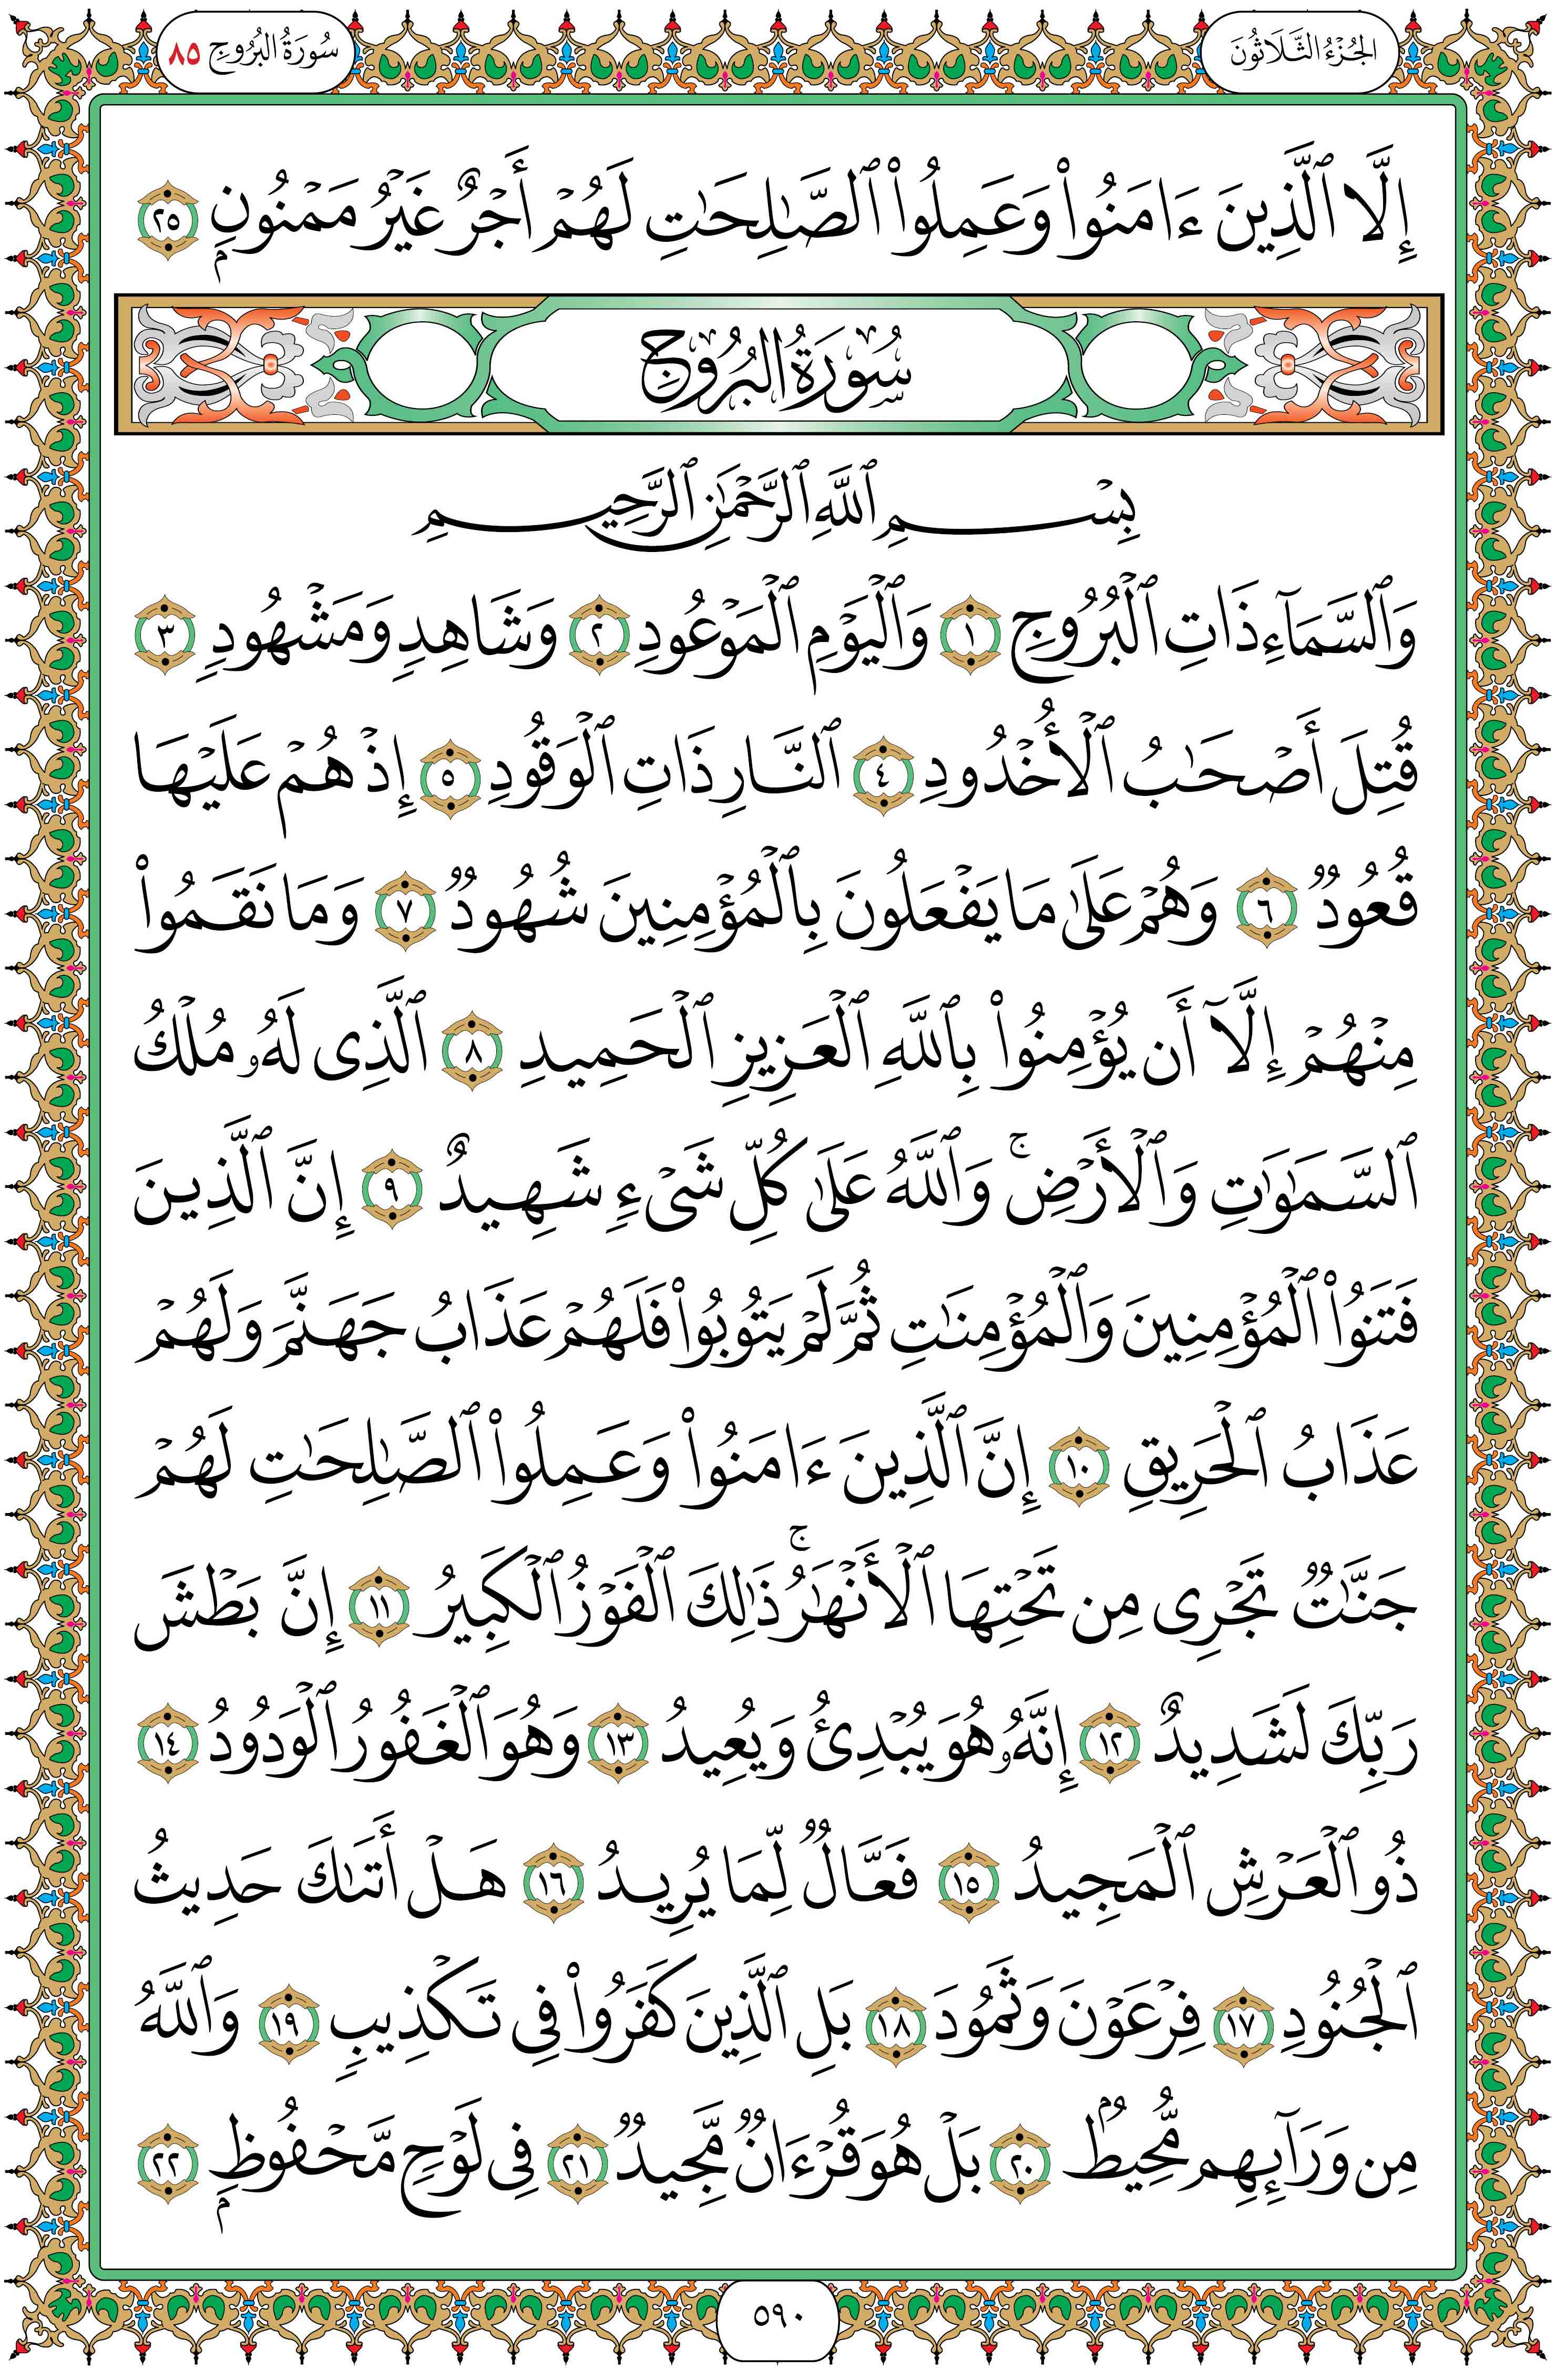 الجُزْءُ الثَّلَاثُونَ
سُورَةُ البُرُوجِ ٨٥
إِلَّا ٱلَّذِينَ ءَامَنُوا۟ وَعَمِلُوا۟ ٱلصَّـٰلِحَـٰتِ لَهُمْ أَجْرٌ غَيْرُ مَمْنُونٍۭ ٢٥
سُورَةُ البُرُوجِ
بِسْمِ ٱللَّهِ ٱلرَّحْمَـٰنِ ٱلرَّحِيمِ
وَٱلسَّمَآءِ ذَاتِ ٱلْبُرُوجِ ١ وَٱلْيَوْمِ ٱلْمَوْعُودِ ٢ وَشَاهِدٍ وَمَشْهُودٍ ٣
قُتِلَ أَصْحَـٰبُ ٱلْأُخْدُودِ ٤ ٱلنَّارِ ذَاتِ ٱلْوَقُودِ ٥ إِذْ هُمْ عَلَيْهَا
قُعُودٌ ٦ وَهُمْ عَلَىٰ مَا يَفْعَلُونَ بِٱلْمُؤْمِنِينَ شُهُودٌ ٧ وَمَا نَقَمُوا۟
مِنْهُمْ إِلَّآ أَن يُؤْمِنُوا۟ بِٱللَّهِ ٱلْعَزِيزِ ٱلْحَمِيدِ ٨ ٱلَّذِى لَهُۥ مُلْكُ
ٱلسَّمَـٰوَٰتِ وَٱلْأَرْضِ ۚ وَٱللَّهُ عَلَىٰ كُلِّ شَىْءٍ شَهِيدٌ ٩ إِنَّ ٱلَّذِينَ
فَتَنُوا۟ ٱلْمُؤْمِنِينَ وَٱلْمُؤْمِنَـٰتِ ثُمَّ لَمْ يَتُوبُوا۟ فَلَهُمْ عَذَابُ جَهَنَّمَ وَلَهُمْ
عَذَابُ ٱلْحَرِيقِ ١٠ إِنَّ ٱلَّذِينَ ءَامَنُوا۟ وَعَمِلُوا۟ ٱلصَّـٰلِحَـٰتِ لَهُمْ
جَنَّـٰتٌ تَجْرِى مِن تَحْتِهَا ٱلْأَنْهَـٰرُ ۚ ذَٰلِكَ ٱلْفَوْزُ ٱلْكَبِيرُ ١١ إِنَّ بَطْشَ
رَبِّكَ لَشَدِيدٌ ١٢ إِنَّهُۥ هُوَ يُبْدِئُ وَيُعِيدُ ١٣ وَهُوَ ٱلْغَفُورُ ٱلْوَدُودُ ١٤
ذُو ٱلْعَرْشِ ٱلْمَجِيدُ ١٥ فَعَّالٌ لِّمَا يُرِيدُ ١٦ هَلْ أَتَىٰكَ حَدِيثُ
ٱلْجُنُودِ ١٧ فِرْعَوْنَ وَثَمُودَ ١٨ بَلِ ٱلَّذِينَ كَفَرُوا۟ فِى تَكْذِيبٍ ١٩ وَٱللَّهُ
مِن وَرَآئِهِم مُّحِيطٌۢ ٢٠ بَلْ هُوَ قُرْءَانٌ مَّجِيدٌ ٢١ فِى لَوْحٍ مَّحْفُوظٍۭ ٢٢
٥٩٠